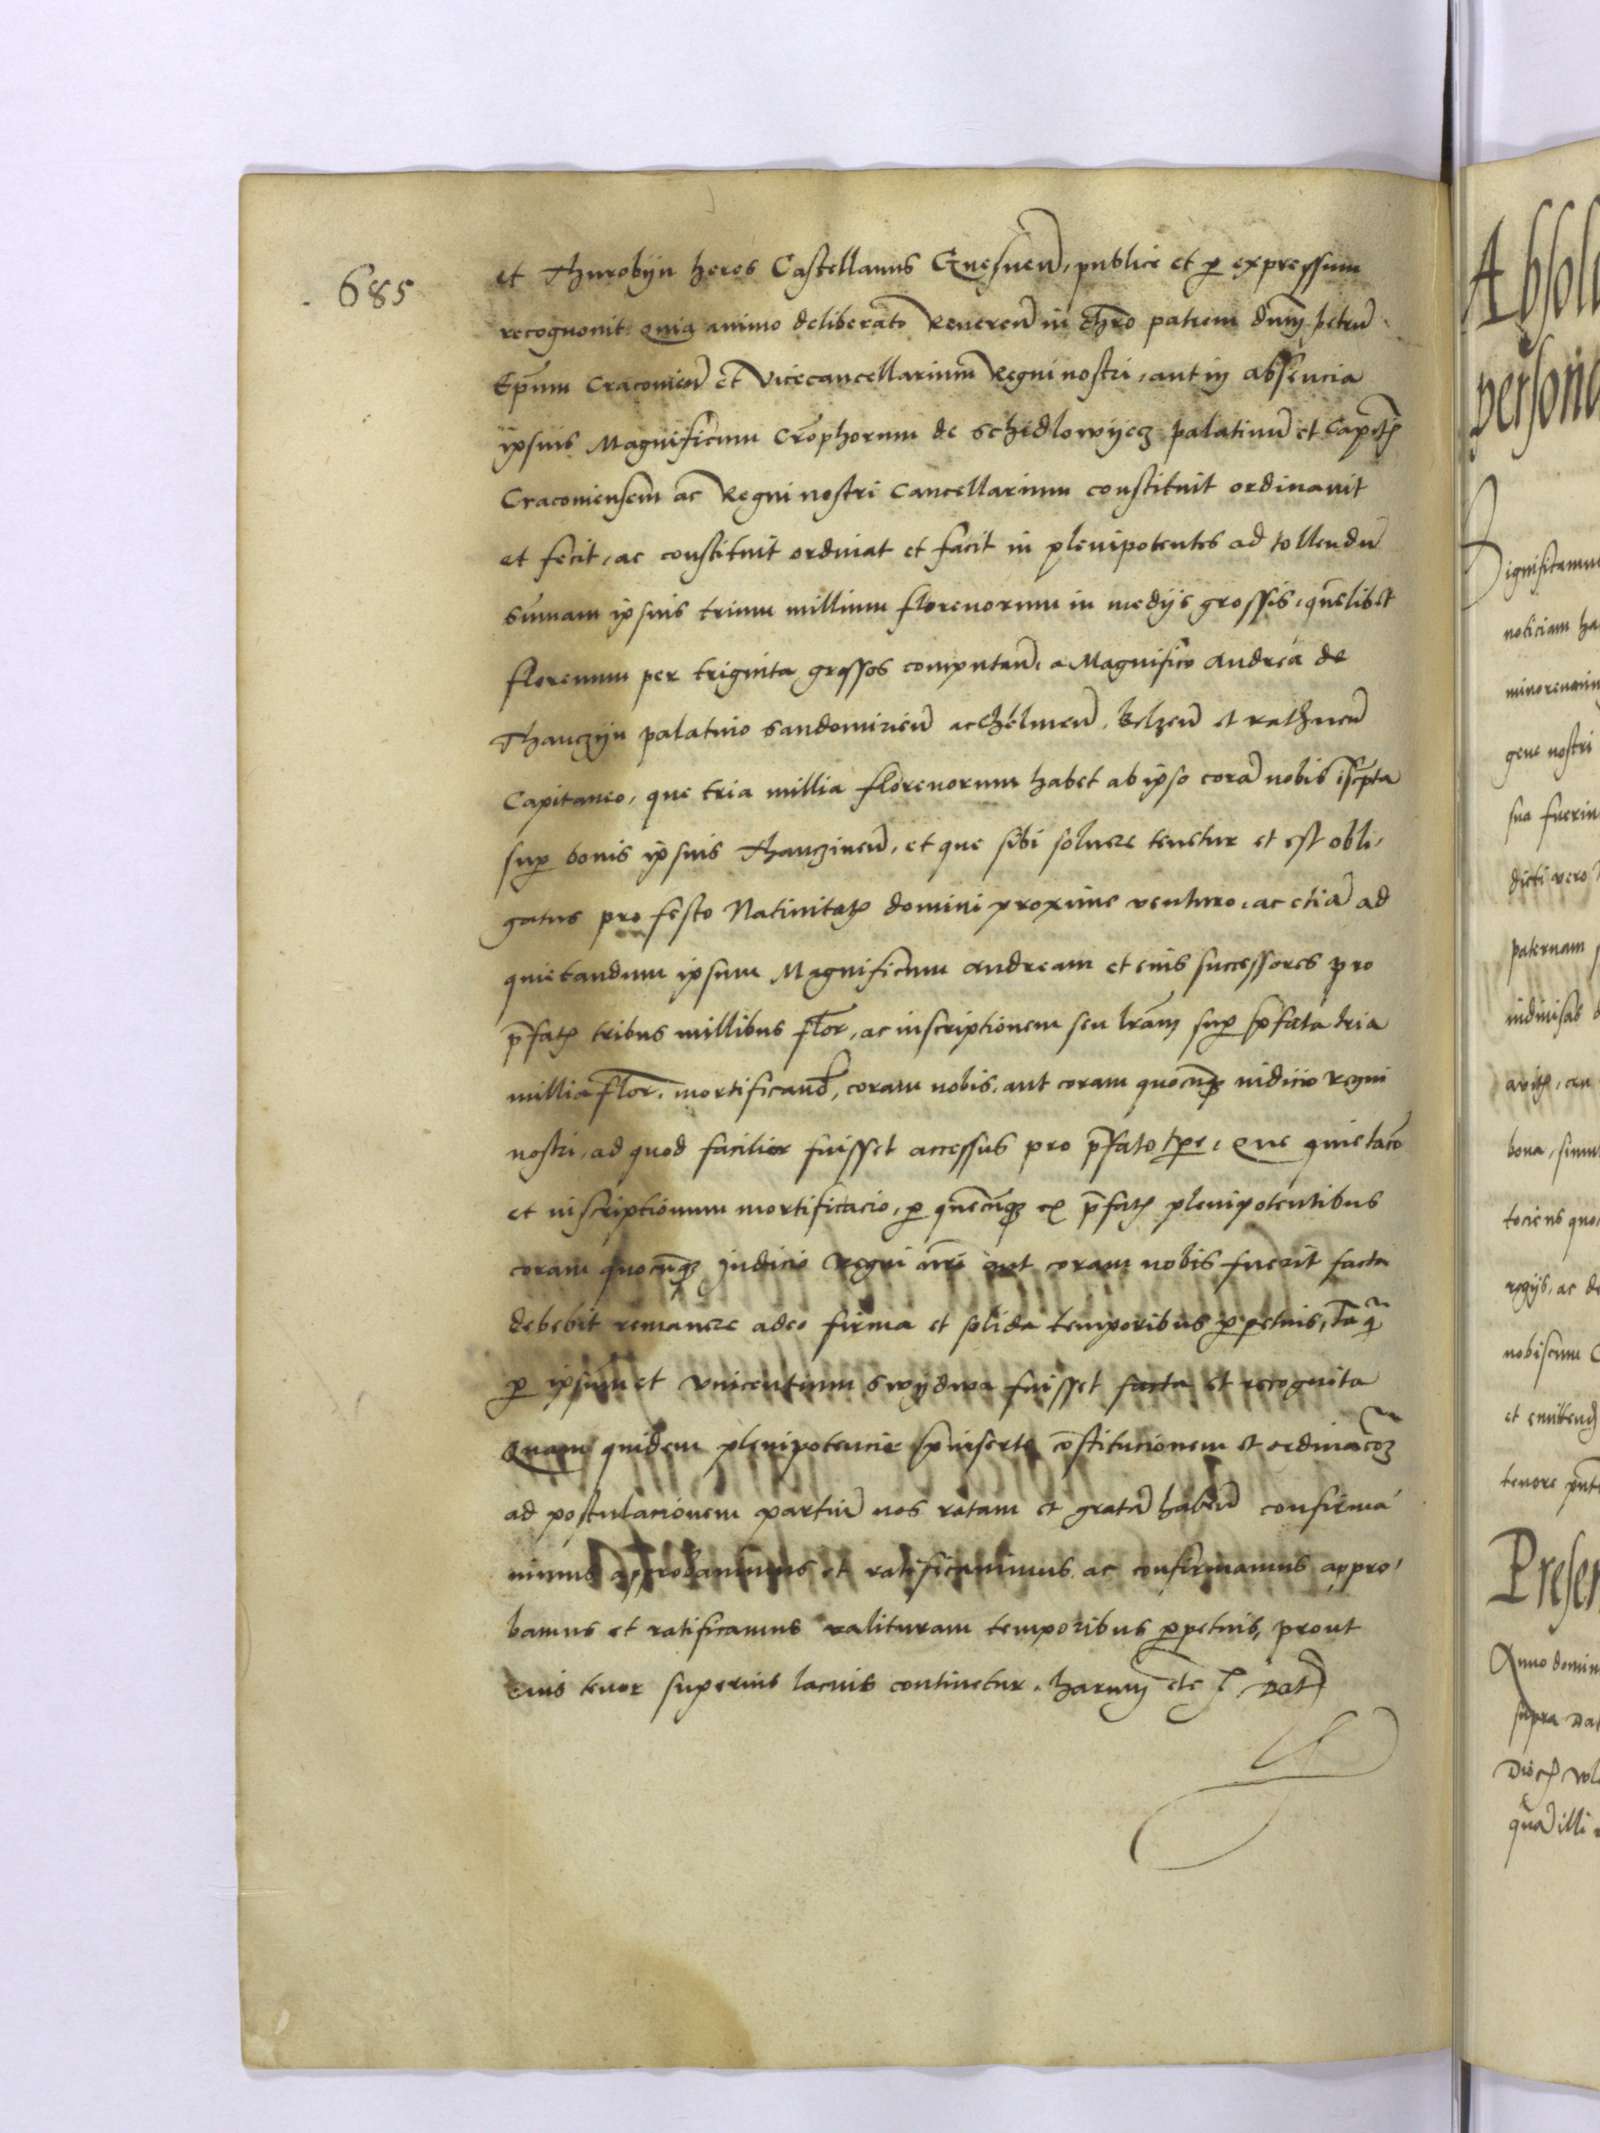 685
et Thurobÿn heres Castellanus Gnesnen̄, publice et p̱ expressum
recognouit. Quia animo deliberato Reueren̄ in chr̄o patrem dn̄m petru̅
Ep̄um Cracouien̄ et Vicecancellarium Regni nostri, aut in absencia
ipsius Magnificum Cr̄ophorum de Schÿdlowÿecz palatinu̅ et Capit̄
Cracouiensem ac Regni nostri Cancellarium constituit ordinauit
et fecit, ac constituit ordinat et facit in plenipotentes ad tollendu̅
Su̅mam ipsius trium millium florenorum in medÿs grossis, que̅libet
florenum per triginta grossos computan̄, a Magnifico Andrea de
Thanczÿn palatino Sandomirien̄ ac Chelmen̄, Belzen̄ et rathnen̄
Capitaneo, que tria millia florenorum habet ab ipso cora̅ nobis i̅scripta
sup̱ bonis ipsius Thanczinen̄, et que sibi soluere tenetur et est obli,
gatus pro festo Natiuitat̄ domini proxime venturo, ac etia̅ ad
quietandum ipsum Magnificum Andream et eius successores pro
p̄fat̄ tribus millibus flor̄, ac inscriptionem seu lr̄am sup̱ p̄fata tria
millia flor̄. mortificand̄, coram nobis, aut coram quocu̅q̱ iudicio regni
nostri, ad quod facilior fuisset accessus pro p̄fato tp̱re, Que quietac̄o
et inscriptionum mortificacio, p̱ que̅cu̅q̱ ex p̄fat̄ plenipotentibus
coram quocu̅q̱ Judicio Regni nr̄i aut coram nobis fuerit facta
debebit remanere adeo firma et solida temporibus p̱petuis, ta̅q̱
p̱ ipsum et Vincentium Swÿdwa fuisset facta et recognita
Quam quidem plenipotencie p̄inserte co̅stitucionem et ordinac̄oꝫ
ad postulacionem partiu̅ nos ratam et grata̅ haben̄ confirma
uimus approbauimus et ratificauimus ac confirmamus appro,
bamus et ratificamus valituram temporibus p̱petuis, prout
eius tenor superius lacius continetur. harum etc. Dat̄
Absolu
persona
Significamus
noticiam ha
gene nostri
sua fuerin
dicti vero
paternam
indiuisas
bona, simu
tociens quo
regÿs, ac de
nobiscum
tenore pn̄t
Presen
Anno domin
supra Dat
qua̅ illi